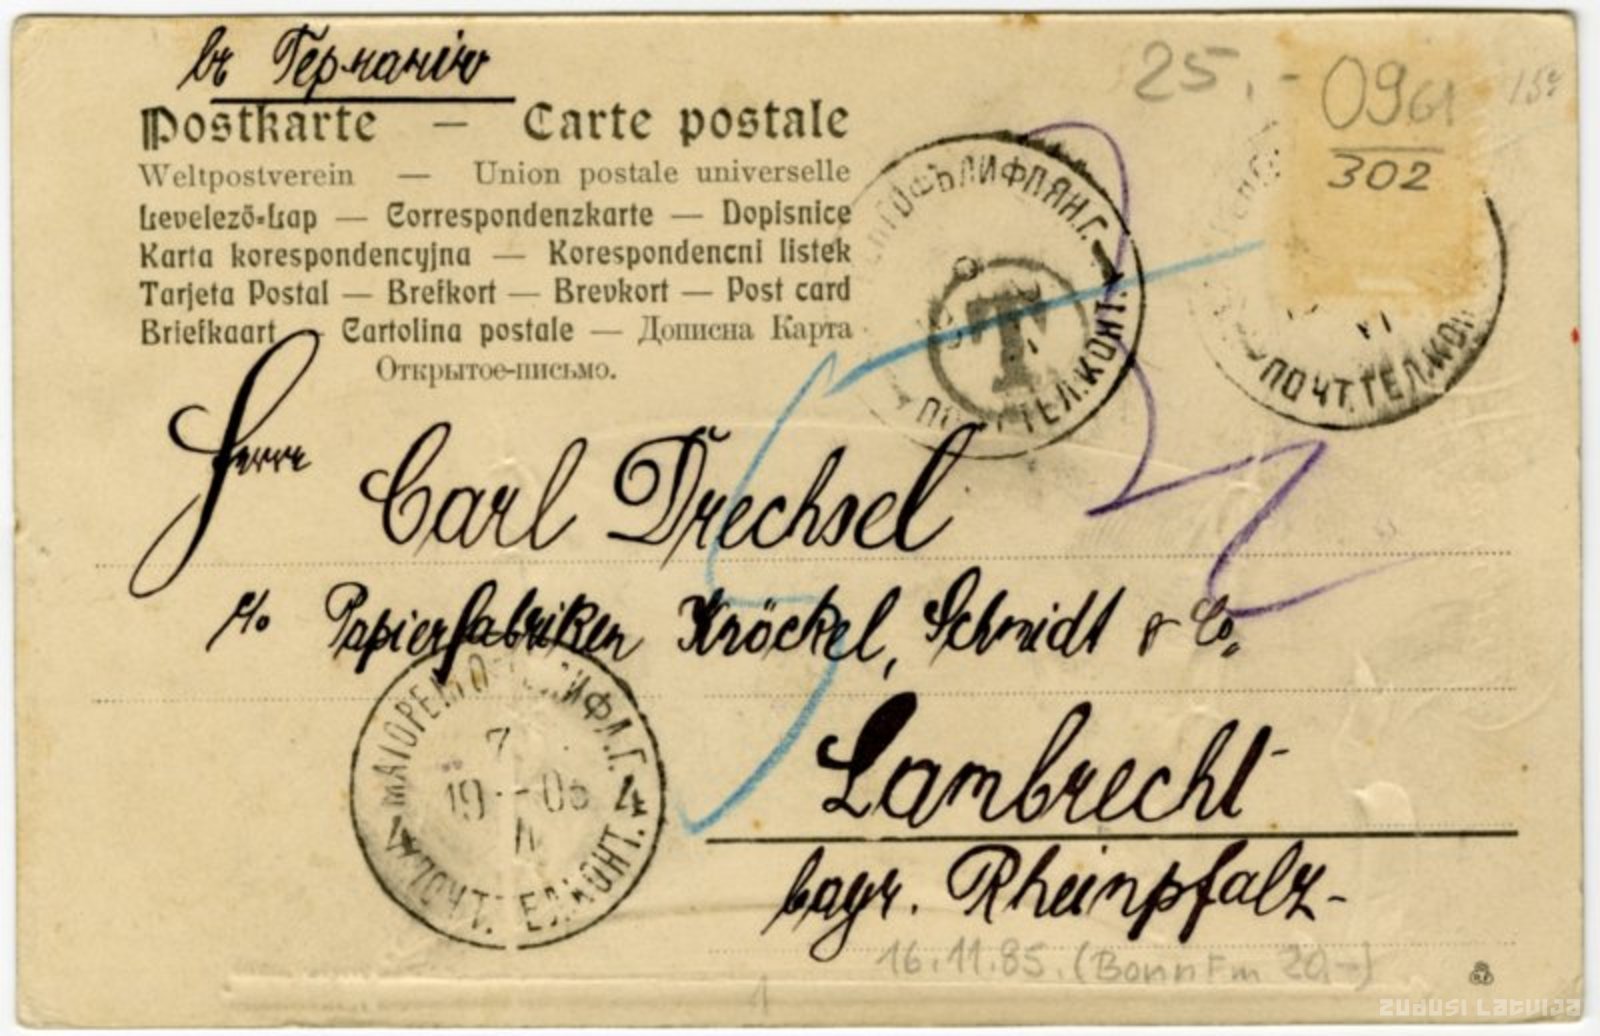 въ Германію
Postkarte — Carte postale
Weltpostverein — Union postale universelle
Levelező-Lap — Correspondenzkarte — Dopisnice
Karta korespondencyjna — Korespondencni listek
Tarjeta Postal — Brefkort — Brevkort — Post card
Briefkaart — Cartolina postale — Дописна Карта
Открытое-письмо.
25.-
0961
302
ЛИФЛЯН.Г.
T
ТЕЛ.КОНТ.
VI
ПОЧТ.ТЕЛ.КОН
Herrn
Carl Drechsel
c/o Papierfabriken Knöckel, Schmidt & Co.
Lambrecht
bayr. Rheinpfalz-
ЛИФЛ.Г.
7
19--06
4
ПОЧТ. ТЕЛ.КОНТ.
16.11.85. (Bonn Fm 20,-)
ZUDUSI LATVIJA